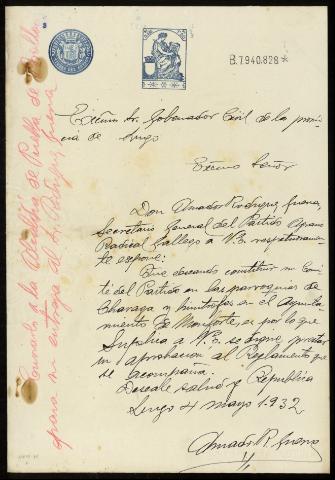 B.7.940.828*
Excmo Sr. Gobernador Civil de la provin
cia de Lugo
Excmo Señor
Don Amador Rodriguez Guerra,
Secretario General del Partido Agrario
Radical Gallego a V.E. respetuosamen-
te expone:
Que deseando constituir un Comi
té del Partido en las parroquias de
Chavaga y limitrofes en el Ayunta-
miento de Monforte, es por lo que
Suplica a V.E. se digne prestar
su aprobacion al Reglamento que
se acompaña.
Deseale salud y Republica
Lugo 4 mayo 1.932
Amador R. Guerra
a la Alcaldia de Puebla de
para su entrega al Sr Rodriguez Guerra